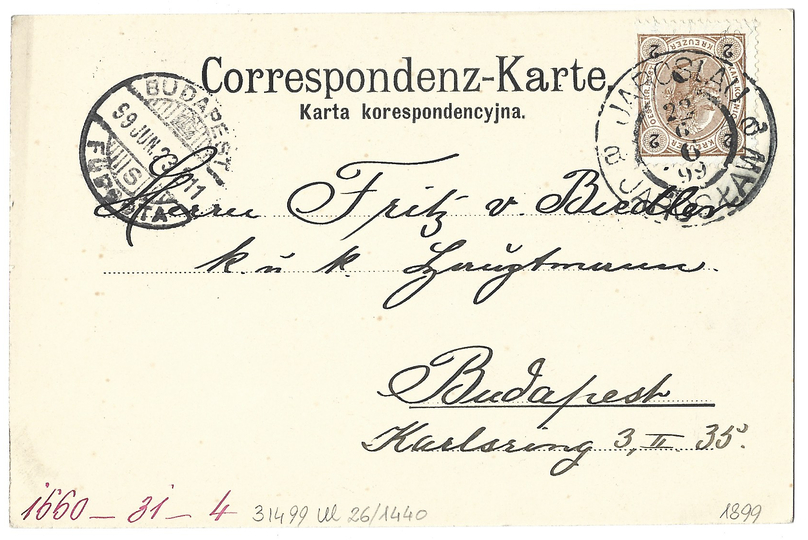 Correspondenz-Karte.
Karta korespondencyjna.
BUDAPEST
99 JUN. 23. 11
S
FŐPOSTA
2 KREUZER 2
2 KREUZER 2
JAROSLAU
22
6
6
99
JAROSŁAW
Herrn Fritz v. Biedler
k. u. k. Hauptmann.
Budapest
Karlsring 3, II. 35.
1660 – 31 – 4
31499 Ul 26/1440
1899